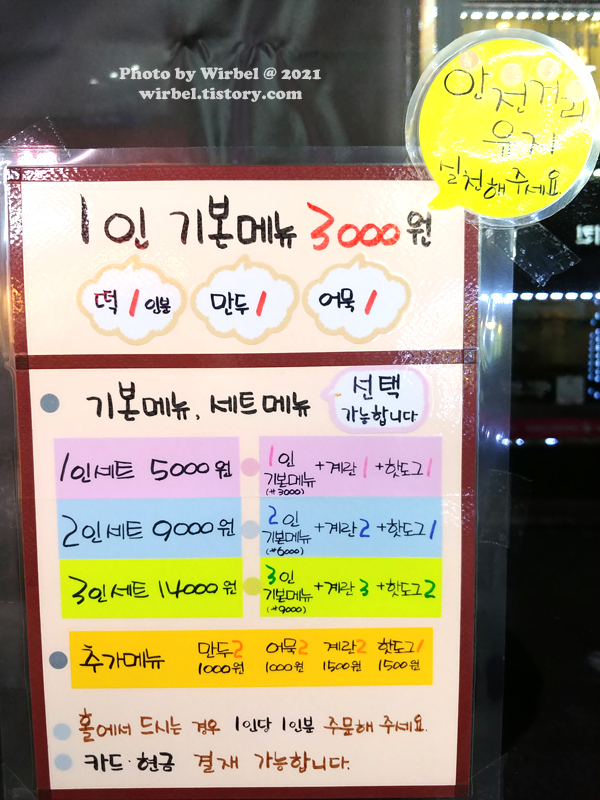 Photo by Wirbel @ 2021
wirbel.tistory.com
안전거리
유지
실천해주세요.
1인 기본메뉴 3000원
떡 1인분
만두 1
어묵 1
기본메뉴, 세트메뉴
선택
가능합니다
1인세트 5000원
1인
기본메뉴
(₩3000)
+계란 1 +핫도그 1
2인세트 9000원
2인
기본메뉴
(₩6000)
+계란 2 +핫도그 1
3인세트 14000원
3인
기본메뉴
(₩9000)
+계란 3 +핫도그 2
추가메뉴
만두2 어묵2 계란2 핫도그1
1000원 1000원 1500원 1500원
홀에서 드시는 경우 1인당 1인분 주문해 주세요.
카드·현금 결재 가능합니다.